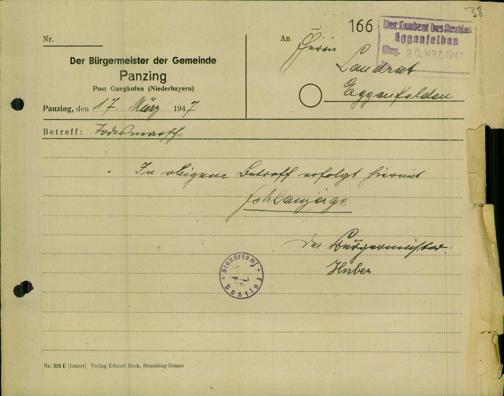 38
Nr.
Der Bürgermeister der Gemeinde
Panzing
Post Gangkofen (Niederbayern)
Panzing, den 17. März 1947
An
Herrn
Landrat
Eggenfelden
166
Der Landrat des Kreises
Eggenfelden
Eing. 20. MRZ. 1947
Betreff: Todesmarsch
In obigem Betreff erfolgt hiermit
Fehlanzeige
Der Bürgermeister:
Huber
Standesamt
Panzing
Nr. 515 E [liniert] Verlag Eduard Beck, Straubing-Donau